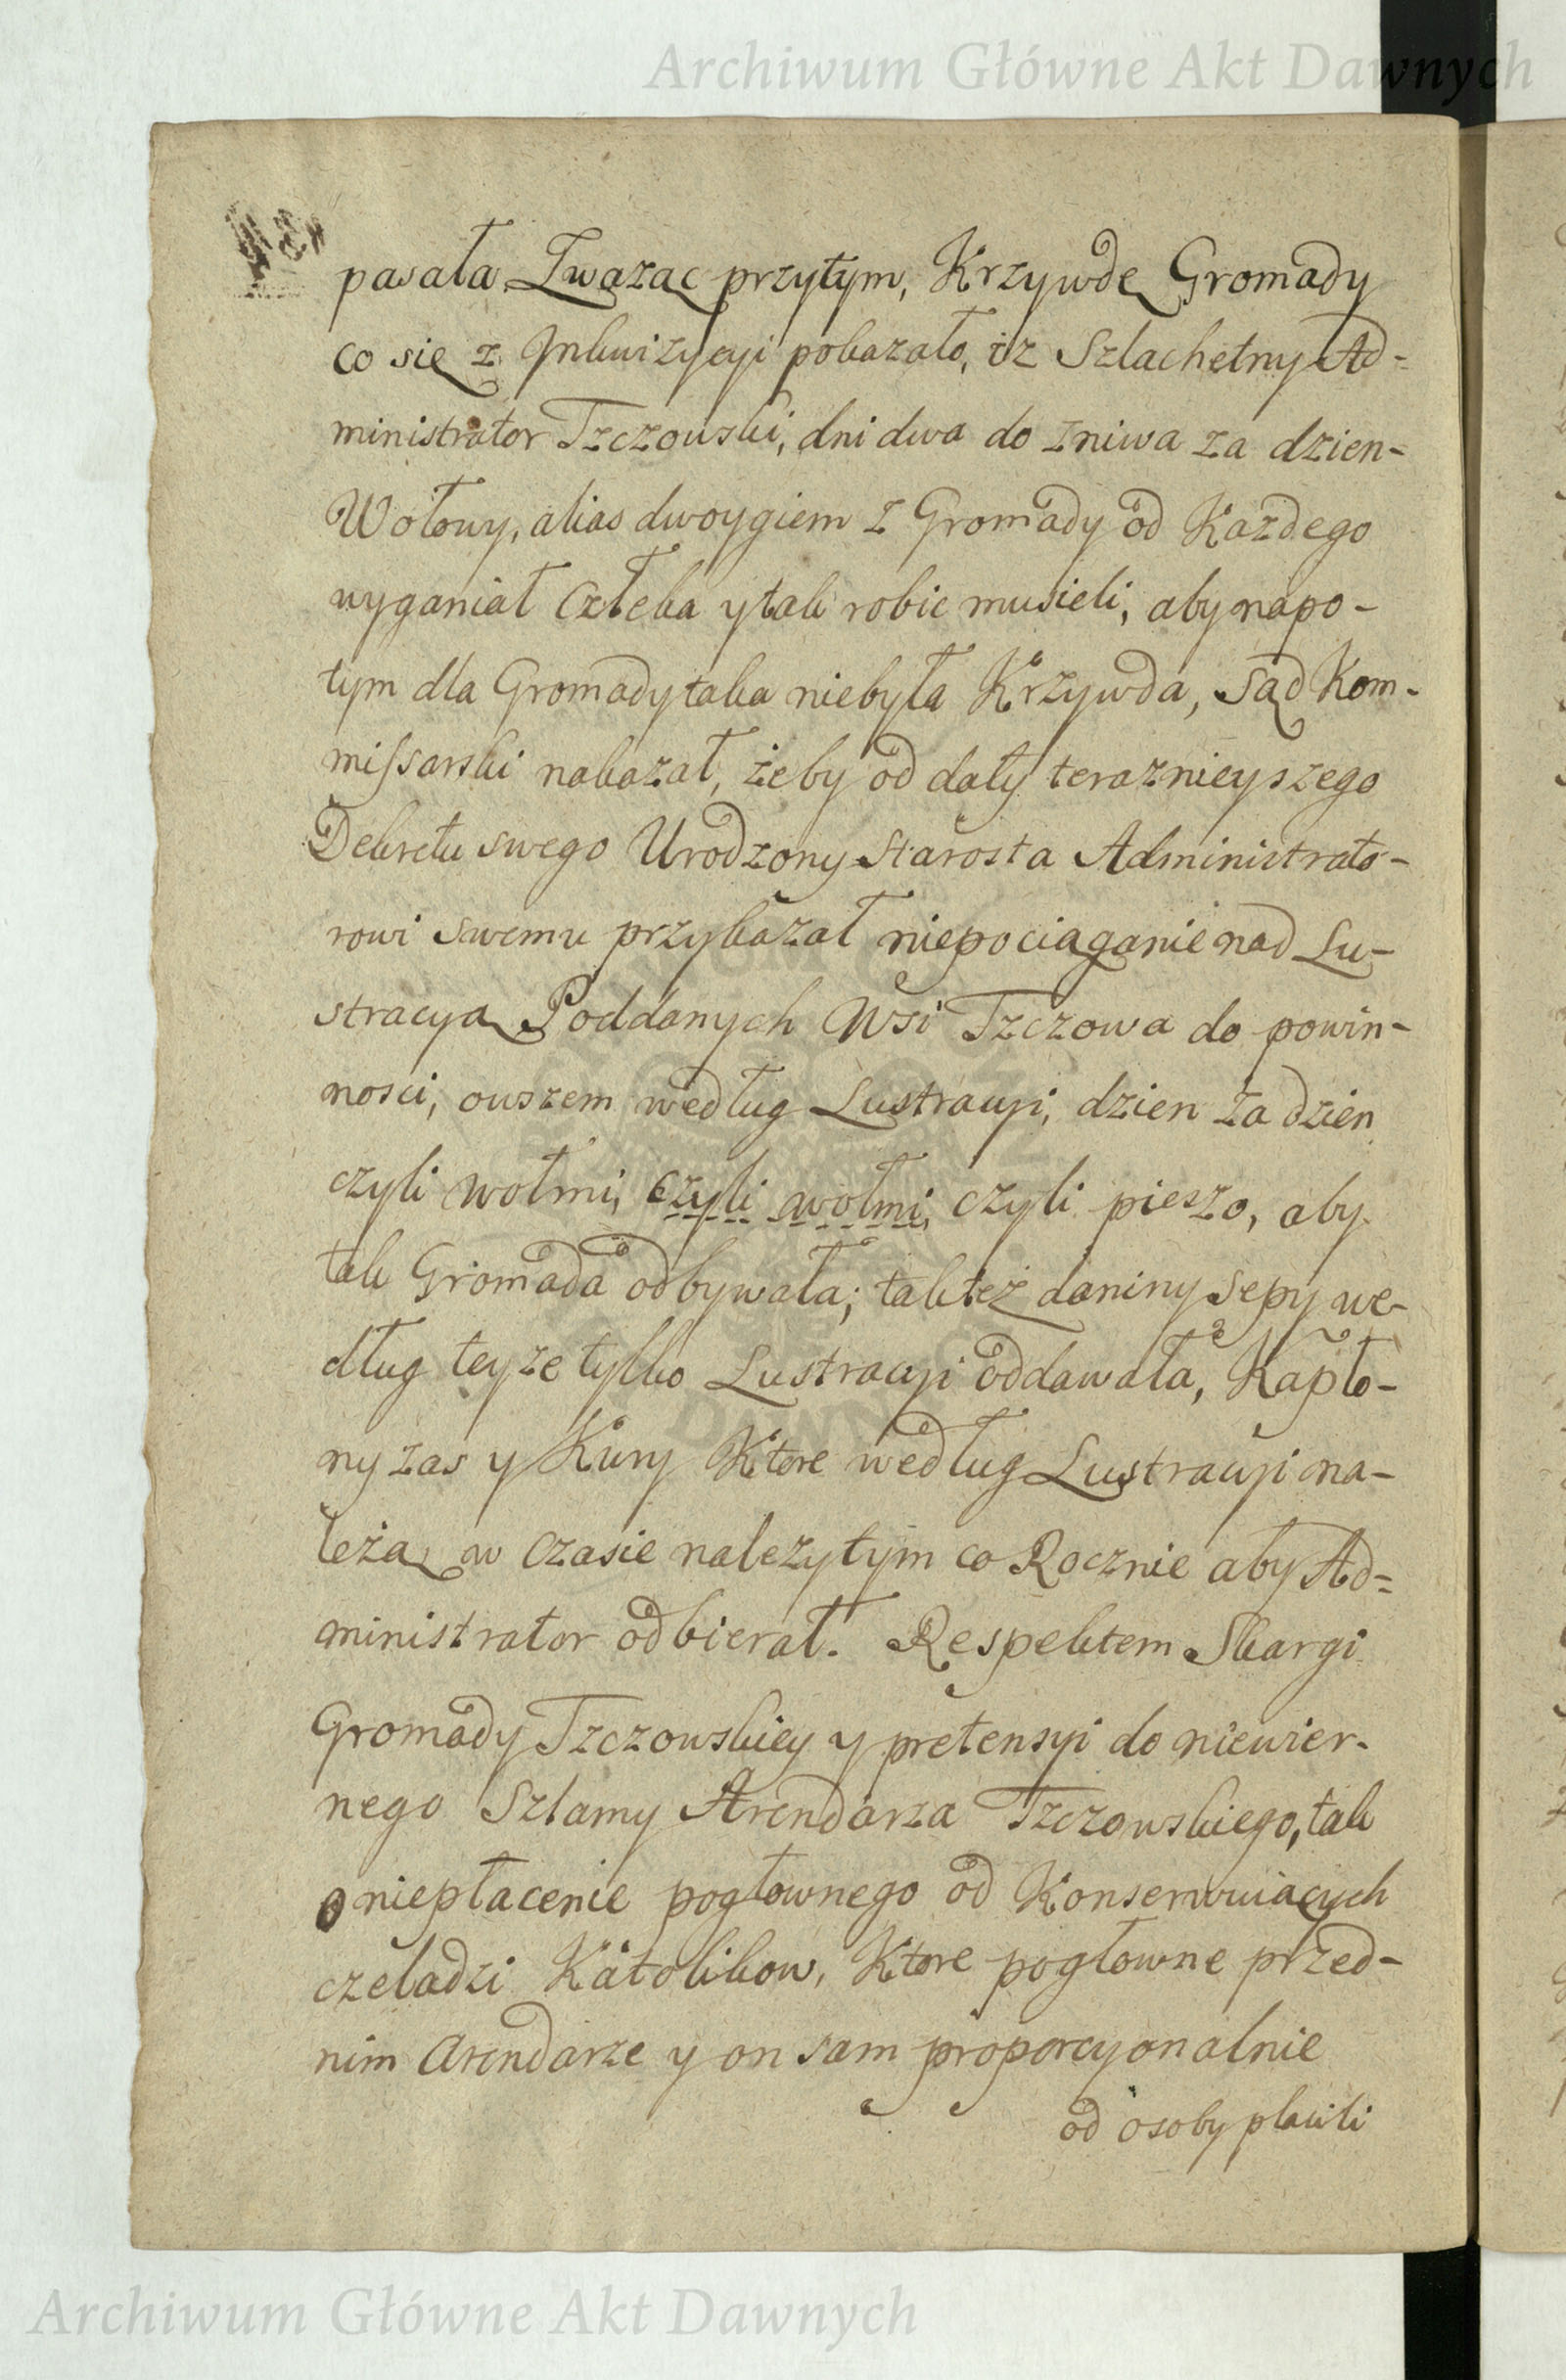 Archiwum Główne Akt Dawnych
pasała. Zwazaiąc przytym, Krzywdę Gromady
co się z Inkwizycyi pokazało, iz Szlachetny Ad-
ministrator Tzczowski, dni dwa do zniwa za dzien-
Wołowy, alias dwoygiem z Gromady od Kazdego
wyganiał Człeka y tak robic musieli, aby napo-
tym dla Gromady taka niebyła Krzywda, Sąd Kom-
missarski nakazał, żeby od daty teraznieyszego
Dekretu swego Urodzony Starosta Administrato-
rowi swemu przykazał niepociąganie nad Lu-
stracyą Poddanych Wsi Tzczowa do powin-
nosci, owszem według Lustracyi, dzien za dzien
czyli wołmi, czyli wołmi, czyli pieszo, aby
tak Gromada odbywała; takteż daniny sepy we-
dług teyze tylko Lustracyi oddawała, Kapło-
ny zas y Kury Ktore według Lustracyi na-
leżą w czasie nalezytym co Rocznie aby Ad-
ministrator odbierał. Respektem Skargi
Gromady Tzczowskiey y pretensyi do niewier-
nego Szlamy Arendarza Tzczowskiego, tak
o niepłacenie pogłownego od Konserwuiących
czeladzi Katolikow, Ktore pogłowne przed-
nim Arendarze y on sam proporcyonalnie
od osoby placili
Archiwum Główne Akt Dawnych